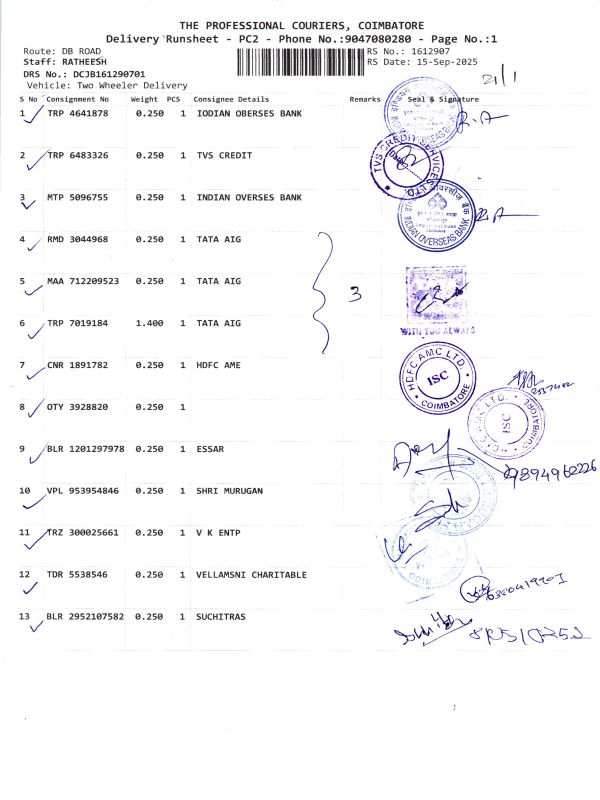 THE PROFESSIONAL COURIERS, COIMBATORE
Delivery Runsheet - PC2 - Phone No.:9047080280 - Page No.:1
Route: DB ROAD RS No.: 1612907
Staff: RATHEESH RS Date: 15-Sep-2025
DRS No.: DCJB161290701
Vehicle: Two Wheeler Delivery
21/1
S No Consignment No Weight PCS Consignee Details Remarks Seal & Signature
1 TRP 4641878 0.250 1 IODIAN OBERSES BANK
2 TRP 6483326 0.250 1 TVS CREDIT
TVS CREDIT SERVICES LTD.
3 MTP 5096755 0.250 1 INDIAN OVERSES BANK
INDIAN OVERSEAS BANK
4 RMD 3044968 0.250 1 TATA AIG
5 MAA 712209523 0.250 1 TATA AIG
3
6 TRP 7019184 1.400 1 TATA AIG
WITH YOU ALWAYS
7 CNR 1891782 0.250 1 HDFC AME
HDFC AMC LTD
ISC
COIMBATORE
8 OTY 3928820 0.250 1
HDFC AMC LTD.
ISC
COIMBATORE
9 BLR 1201297978 0.250 1 ESSAR
9894962226
10 VPL 953954846 0.250 1 SHRI MURUGAN
11 TRZ 300025661 0.250 1 V K ENTP
12 TDR 5538546 0.250 1 VELLAMSNI CHARITABLE
13 BLR 2952107582 0.250 1 SUCHITRAS